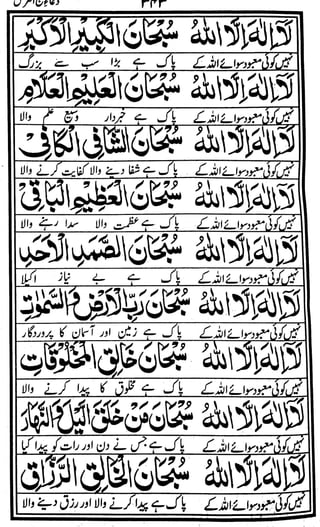 ۳۴۳
لَآ اِلٰهَ اِلَّا اللّٰهُ سُبْحَانَ الْكَبِيْرِ الْاَكْبَرِ
نہیں کوئی معبود سوائے اللہ کے پاک ہے بڑا سب سے بزرگ
لَآ اِلٰهَ اِلَّا اللّٰهُ سُبْحَانَ الْعَلِيْمِ الْعَلَّامِ
نہیں کوئی معبود سوائے اللہ کے پاک ہے خبردار وسیع علم والا
لَآ اِلٰهَ اِلَّا اللّٰهُ سُبْحَانَ الشَّافِى الْكَافِى
نہیں کوئی معبود سوائے اللہ کے پاک ہے شفا دینے والا کفایت کرنے والا
لَآ اِلٰهَ اِلَّا اللّٰهُ سُبْحَانَ الْعَظِيْمِ الْبَاقِى
نہیں کوئی معبود سوائے اللہ کے پاک ہے عظمت والا سدا رہنے والا
لَآ اِلٰهَ اِلَّا اللّٰهُ سُبْحَانَ الصَّمَدِ الْاَحَدِ
نہیں کوئی معبود سوائے اللہ کے پاک ہے بے نیاز اکیلا
لَآ اِلٰهَ اِلَّا اللّٰهُ سُبْحَانَ رَبِّ الْاَرْضِ وَالسَّمٰوٰتِ
نہیں کوئی معبود سوائے اللہ کے پاک ہے زمین اور آسمان کا پروردگار
لَآ اِلٰهَ اِلَّا اللّٰهُ سُبْحَانَ خَالِقِ الْمَخْلُوْقَاتِ
نہیں کوئی معبود سوائے اللہ کے پاک ہے مخلوق کا پیدا کرنے والا
لَآ اِلٰهَ اِلَّا اللّٰهُ سُبْحَانَ مَنْ خَلَقَ الَّيْلَ وَالنَّهَارَ
نہیں کوئی معبود سوائے اللہ کے پاک ہے جس نے دن اور رات کو پیدا کیا
لَآ اِلٰهَ اِلَّا اللّٰهُ سُبْحَانَ الْخَالِقِ الرَّزَّاقِ
نہیں کوئی معبود سوائے اللہ کے پاک ہے پیدا کرنے والا اور رزق دینے والا